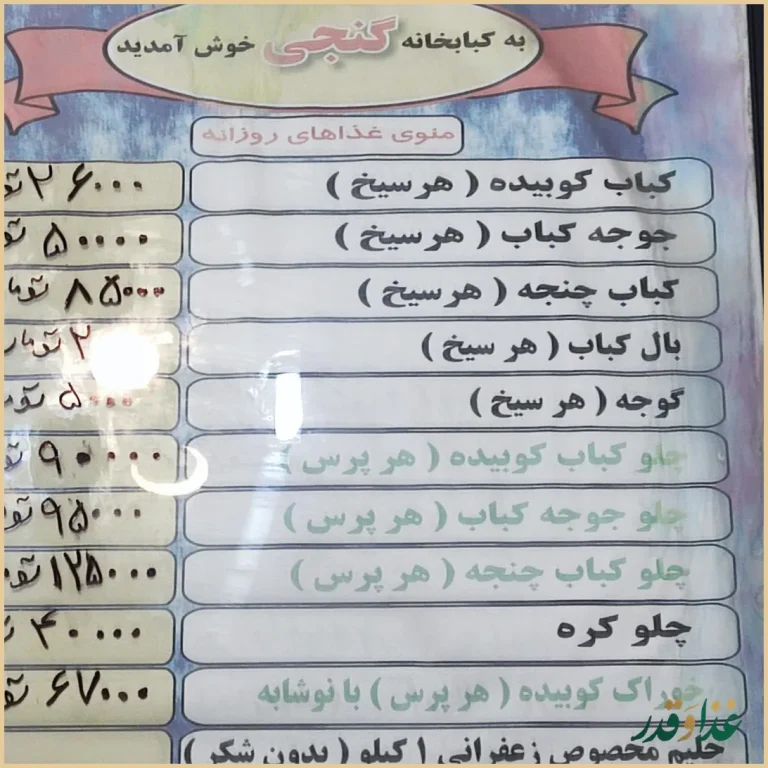 به کبابخانه گنجی خوش آمدید
منوی غذاهای روزانه
کباب کوبیده ( هر سیخ ) ۲۶۰۰۰
جوجه کباب ( هر سیخ ) ۵۰۰۰۰
کباب چنجه ( هر سیخ ) ۸۵۰۰۰
بال کباب ( هر سیخ )
گوجه ( هر سیخ ) ۵۰۰۰
چلو کباب کوبیده ( هر پرس ) ۹۰۰۰۰
چلو جوجه کباب ( هر پرس ) ۹۵۰۰۰
چلو کباب چنجه ( هر پرس ) ۱۲۵۰۰۰
چلو کره ۴۰۰۰۰
خوراک کوبیده ( هر پرس ) با نوشابه ۶۷۰۰۰
حلیم مخصوص زعفرانی ۱ کیلو ( بدون شکر )
غذا و قدر